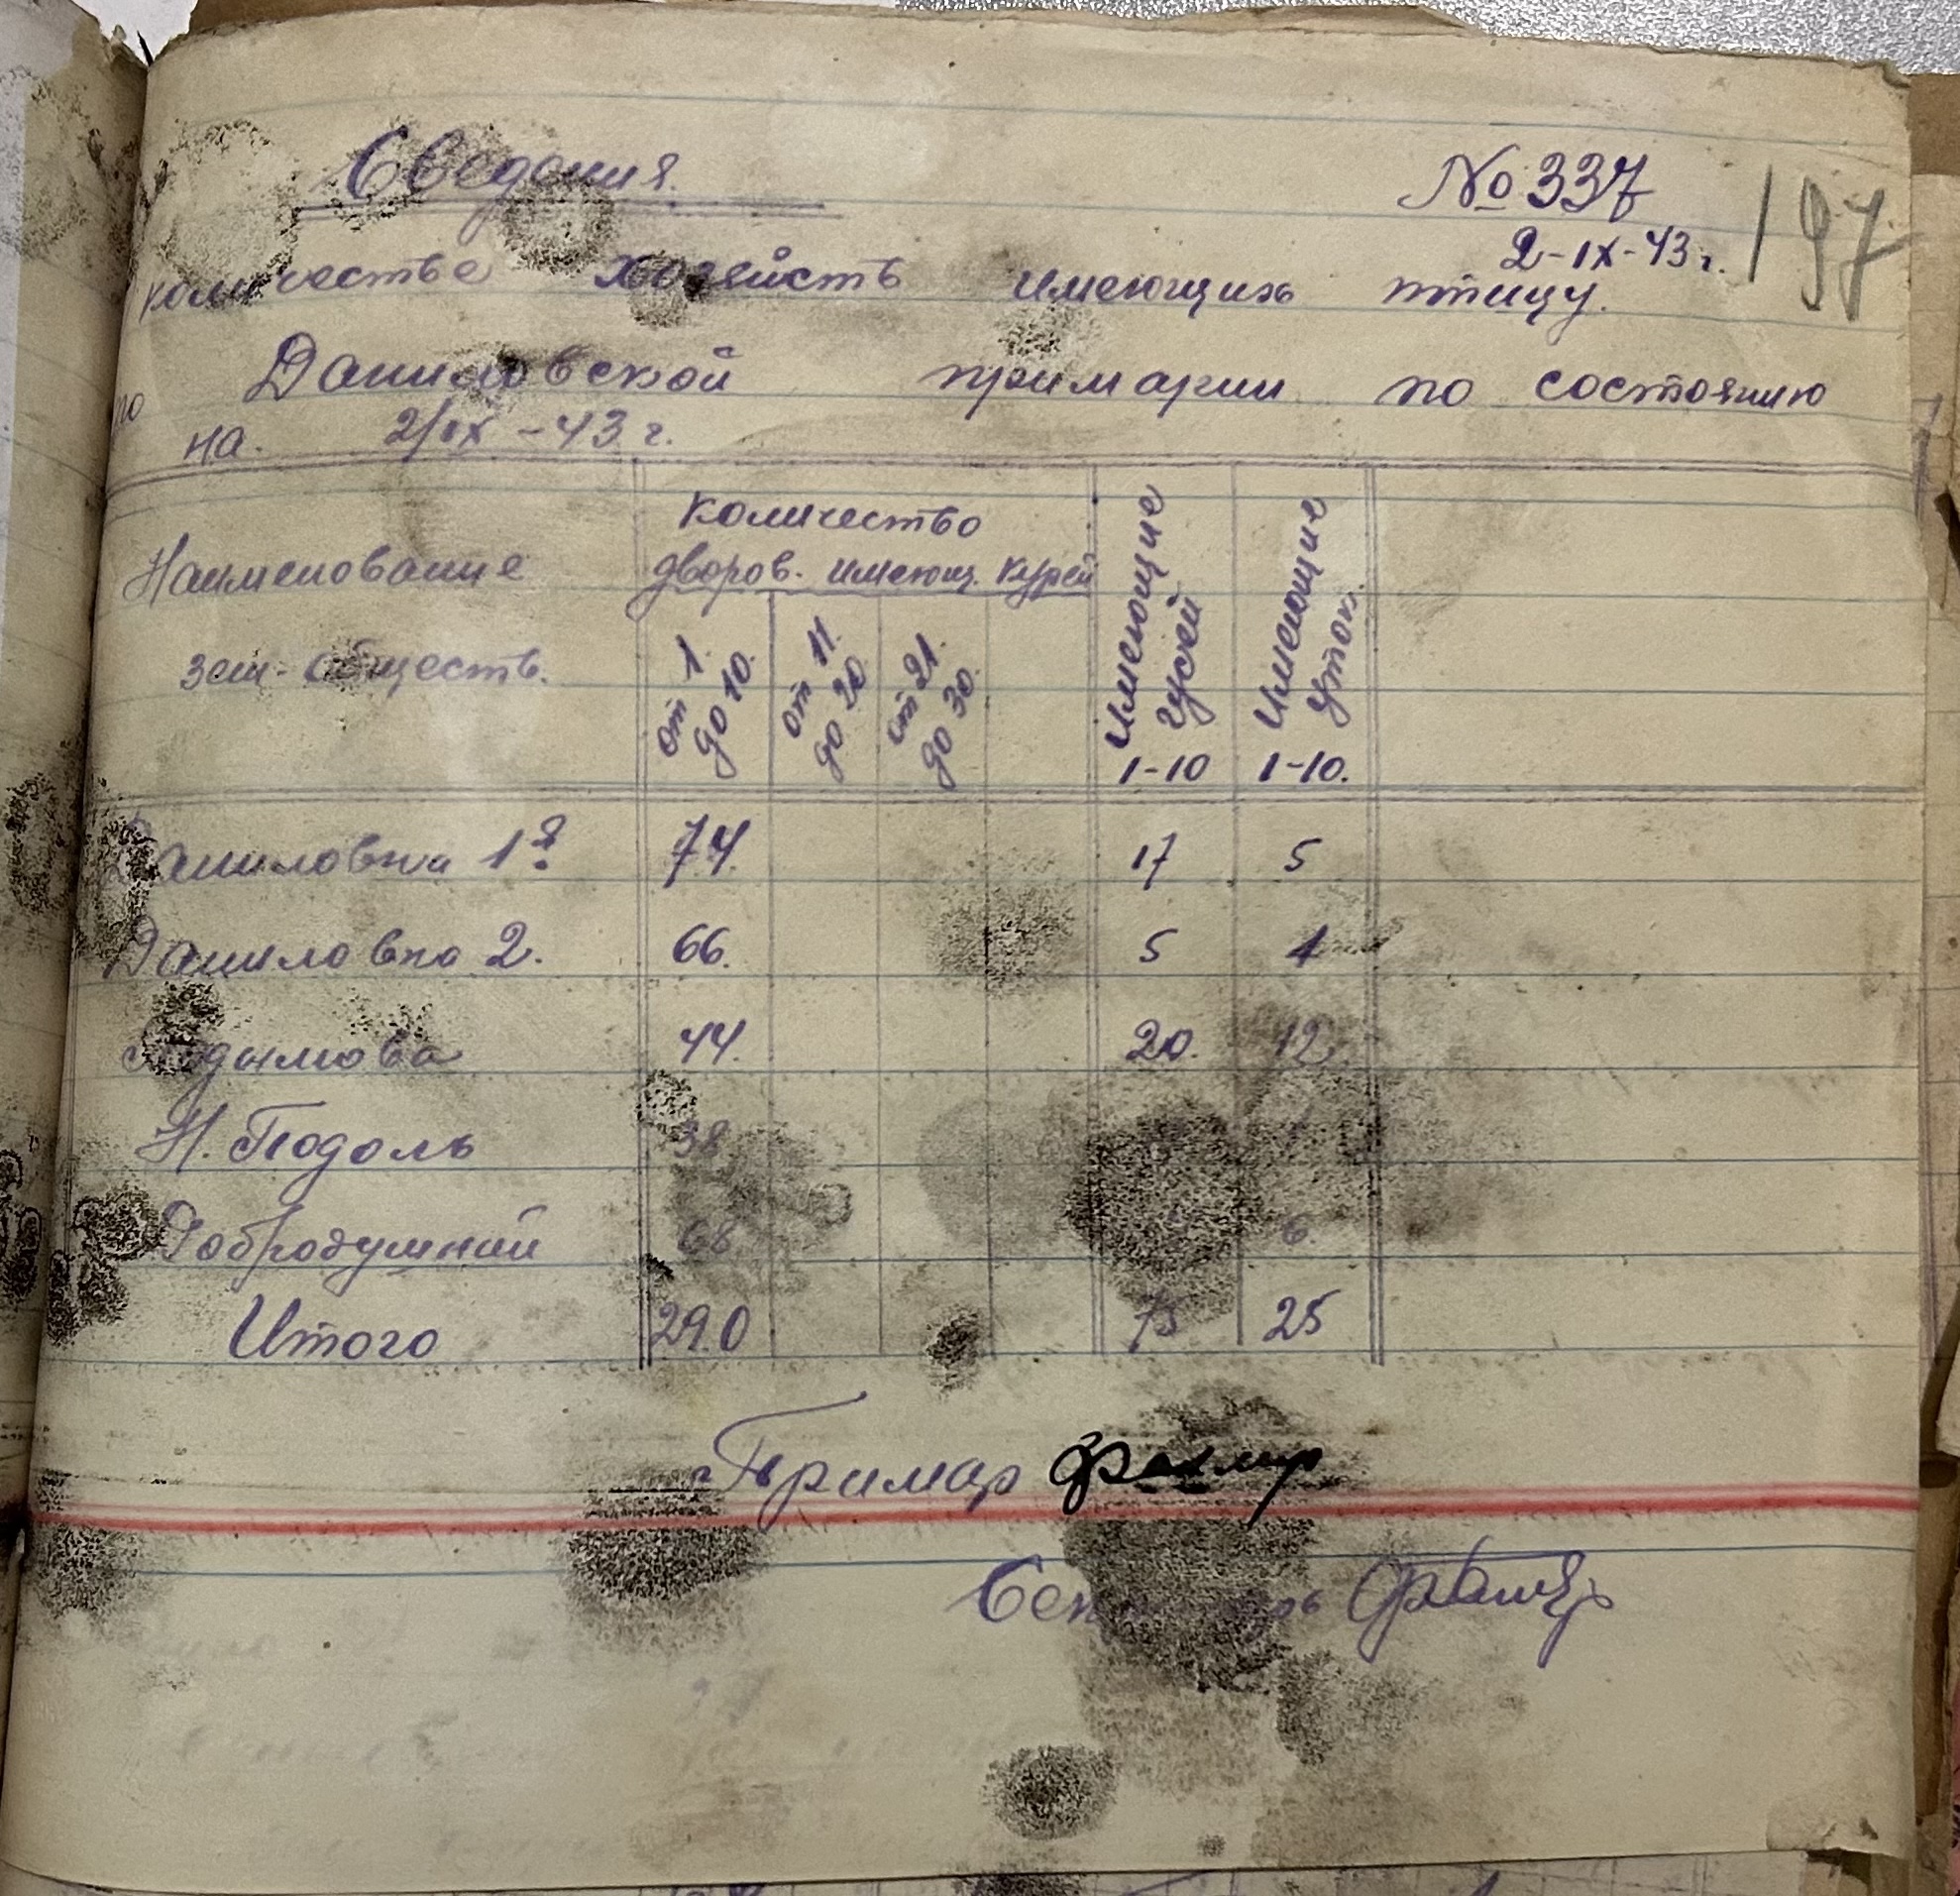 Сведения.
№ 337
197
2-IX-43 г.
количестве хозяйств имеющих птицу.
по Даниловской примарии по состоянию
на. 2/IX-43 г.
Наименование
зем. обществ.
Количество
дворов. имеющ. курей
от 1. до 10.
от 11. до 20
от 21. до 30.
Имеющие гусей
1-10
Имеющие уток.
1-10.
Даниловка 1я 74. 17 5
Даниловка 2. 66. 5 1
44. 20. 12
Н. Подоль 38
Добродушний 68 6
Итого 290 75 25
Примар
Секретарь